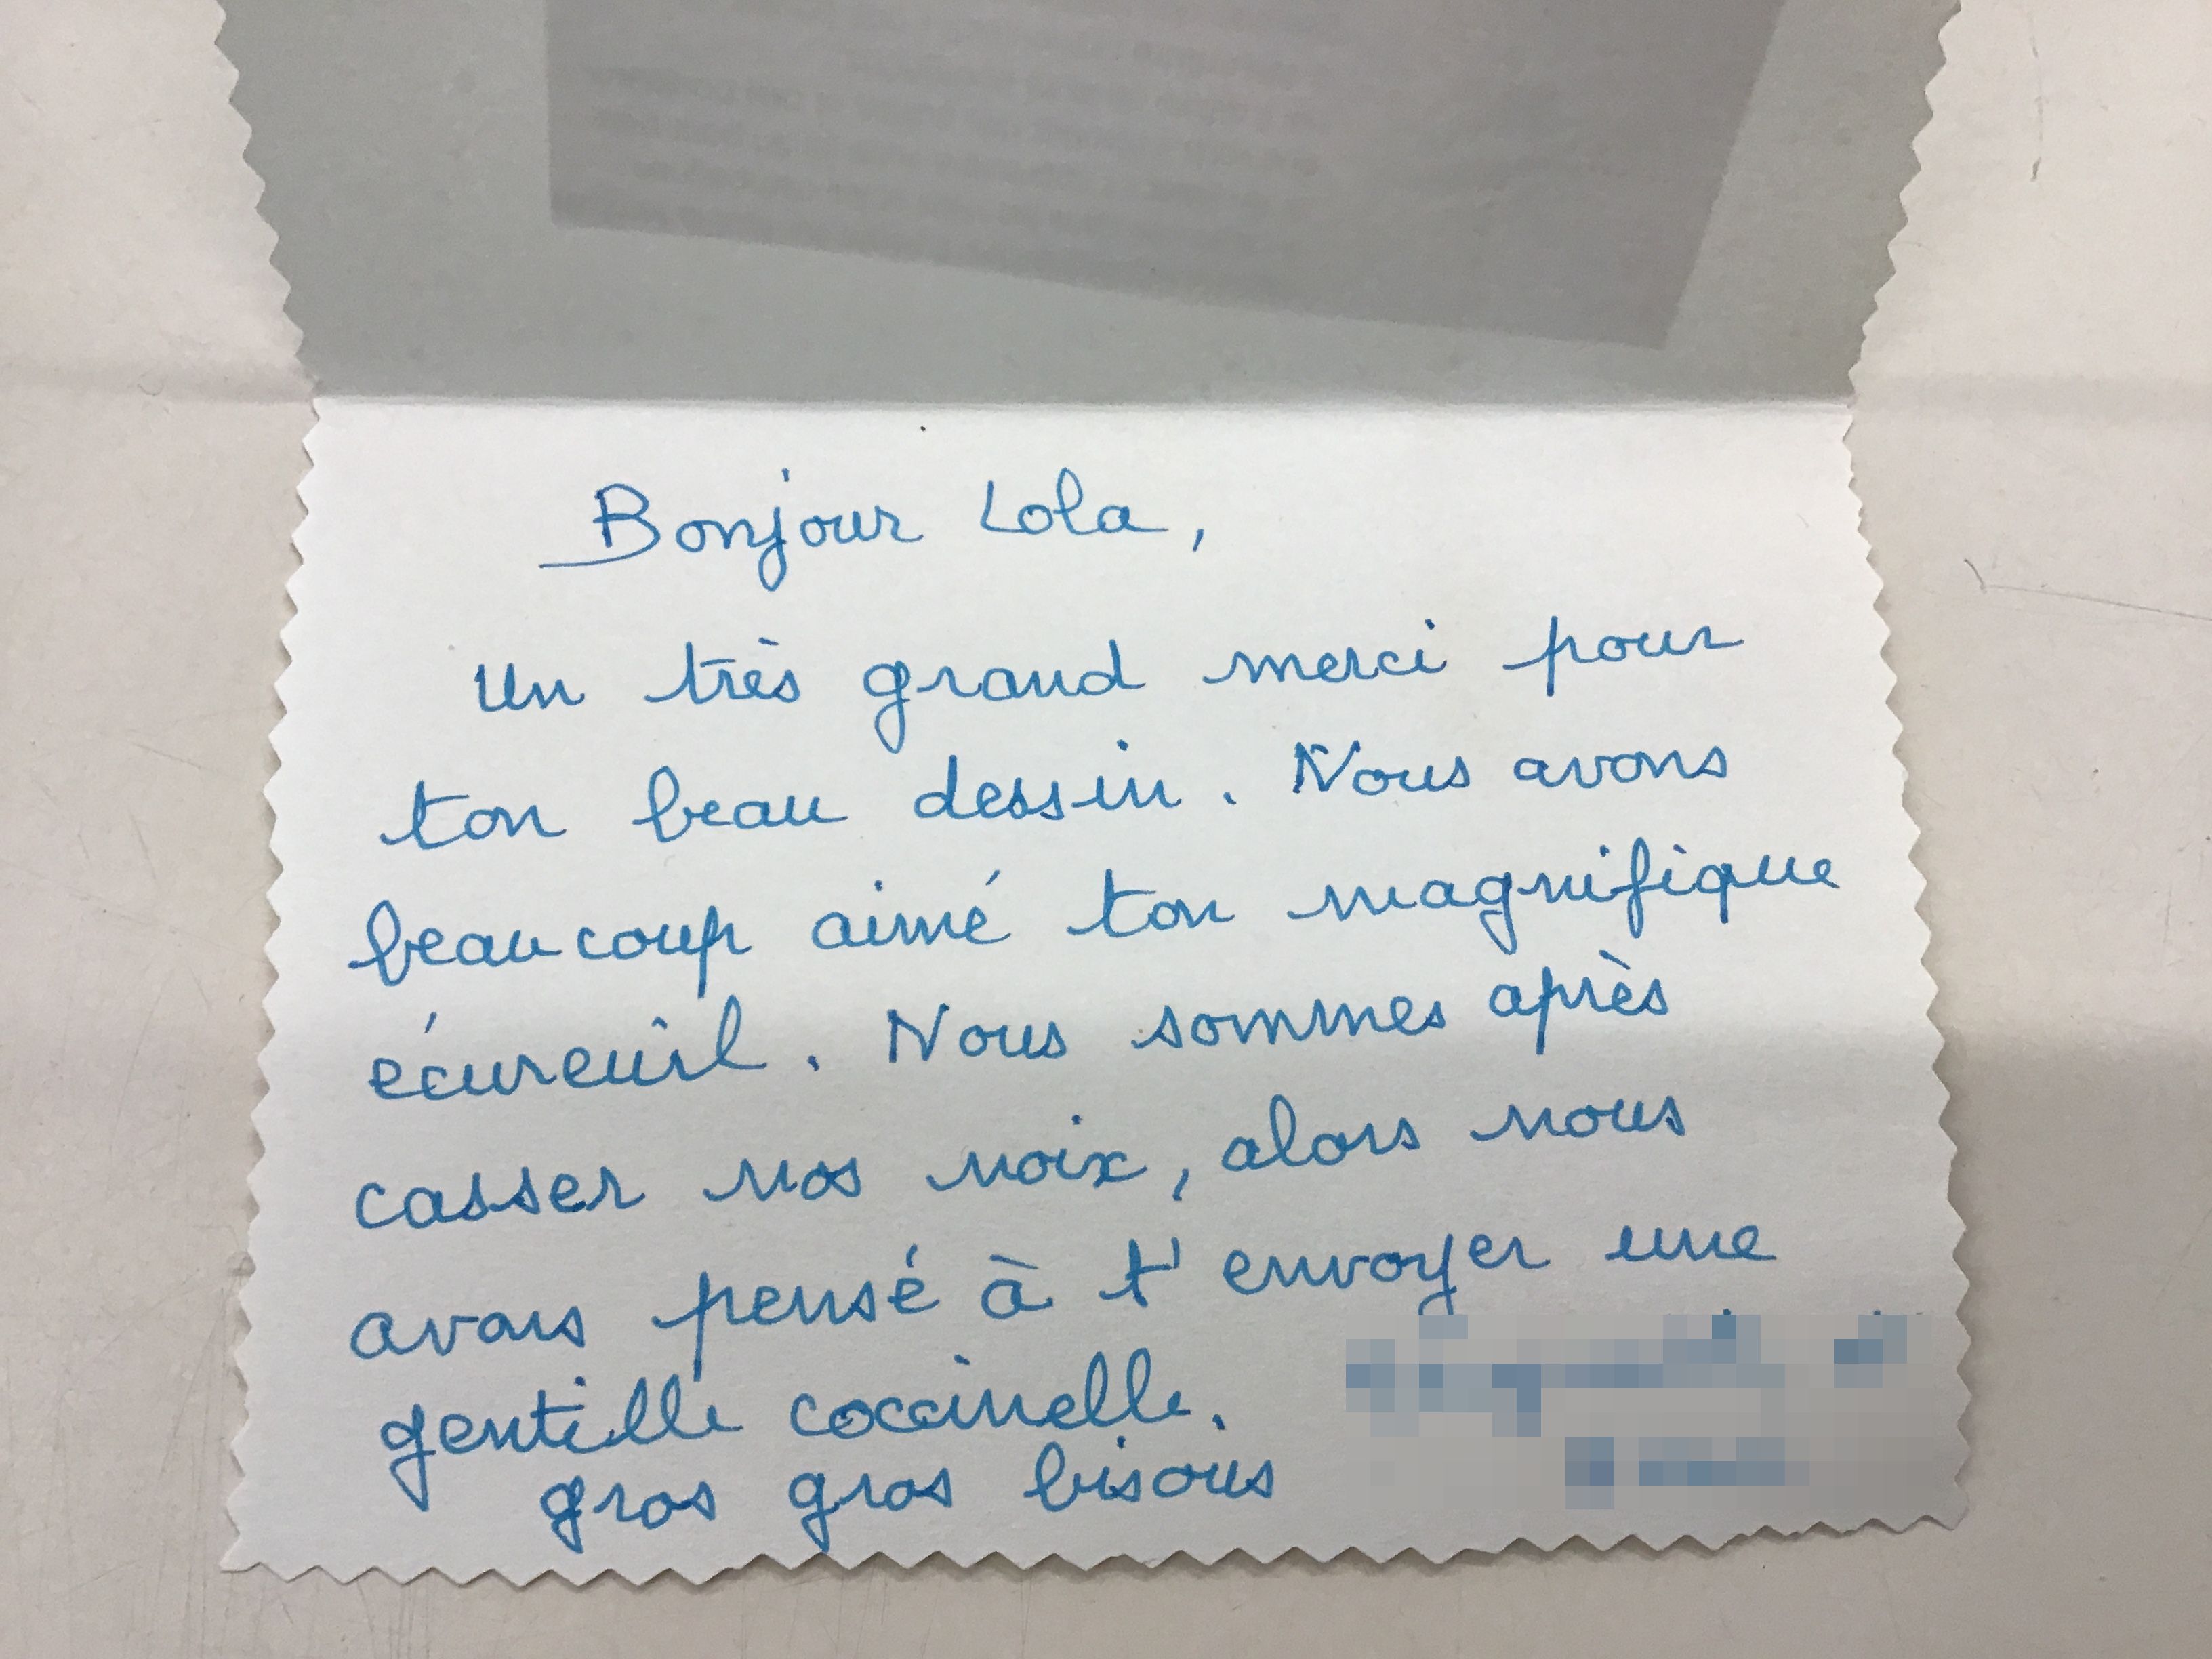 Bonjour Lola,
Un très grand merci pour
ton beau dessin. Nous avons
beaucoup aimé ton magnifique
écureuil. Nous sommes après
casser nos noix, alors nous
avons pensé à t'envoyer une
gentille coccinelle.
gros gros bisous